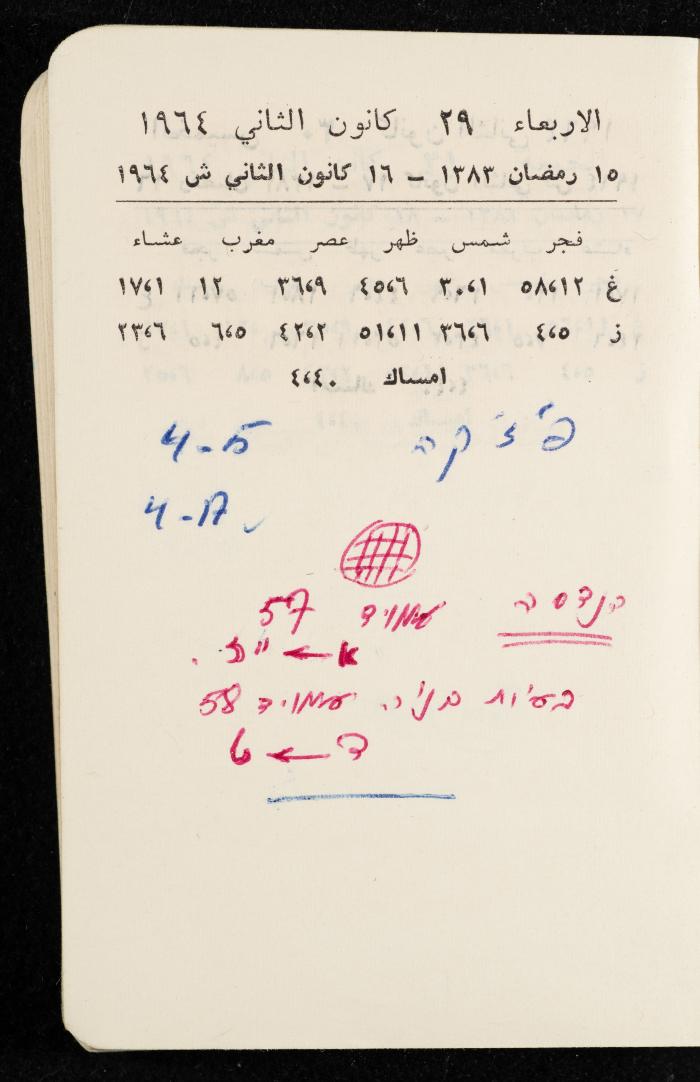 الاربعاء ٢٩ كانون الثاني ١٩٦٤
١٥ رمضان ١٣٨٣ – ١٦ كانون الثاني ش ١٩٦٤
فجر شمس ظهر عصر مغرب عشاء
غ ٥٨،١٢ ٣٠،١ ٤٥،٦ ٣٦،٩ ١٢ ١٧،١
ز ٤،٥ ٣٦،٦ ٥١،١١ ٤٢،٢ ٦،٥ ٢٣،٦
امساك ٤،٤٠
פיזיקה 4-15
4-17
הנדסה עמוד 57
א ← יז.
בעיות בניה עמוד 58
ד ← ט